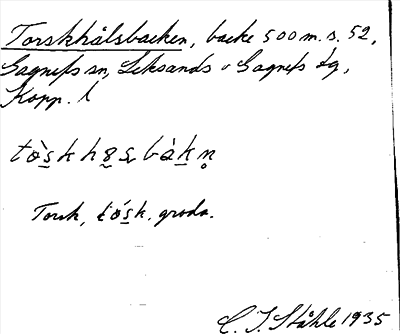 Torskhålsbacken, backe 500 m. s. 52,
Gagnefs sn, Leksands o Gagnefs tg,
Kopp. l
tò̱skh bàkn̥
Torsk, tó̱sk, groda.
C. I. Ståhle 1935